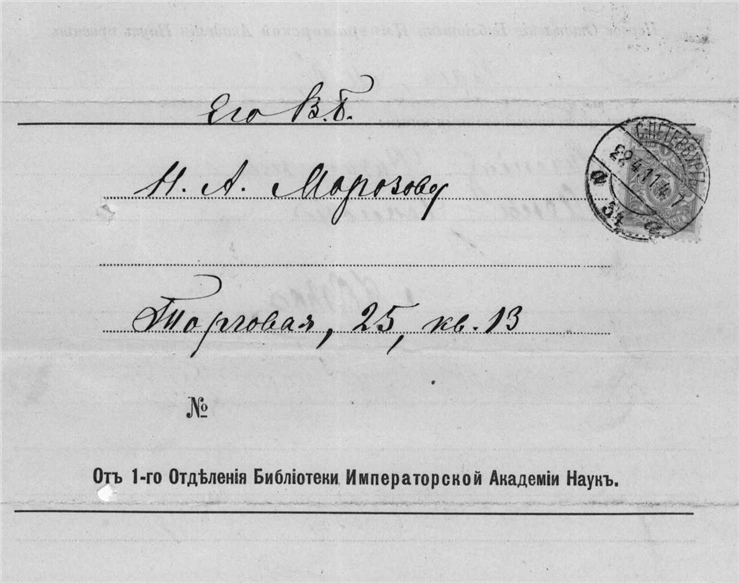 Его В.Б.
Н. А. Морозову
Торговая, 25, кв. 13
№
Отъ 1-го Отдѣленія Библіотеки Императорской Академіи Наукъ.
С.ПЕТЕРБУРГЪ
29.4.11